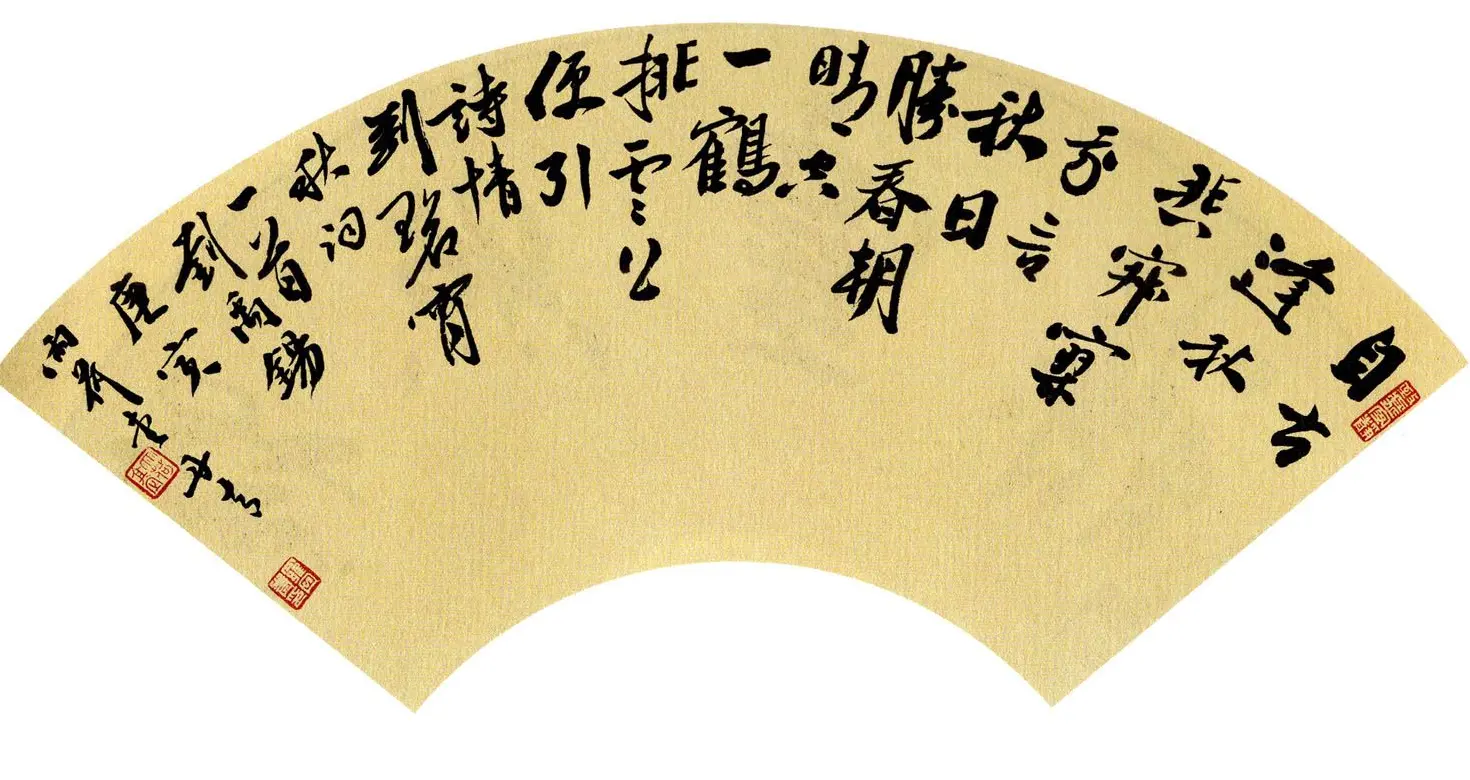 自古
逢秋
悲寂寥
我言
秋日
勝春朝
晴空
一鶴
排雲上
便引
詩情
到碧霄
秋詞
一首
劉禹錫
庚寅
雨荷堂